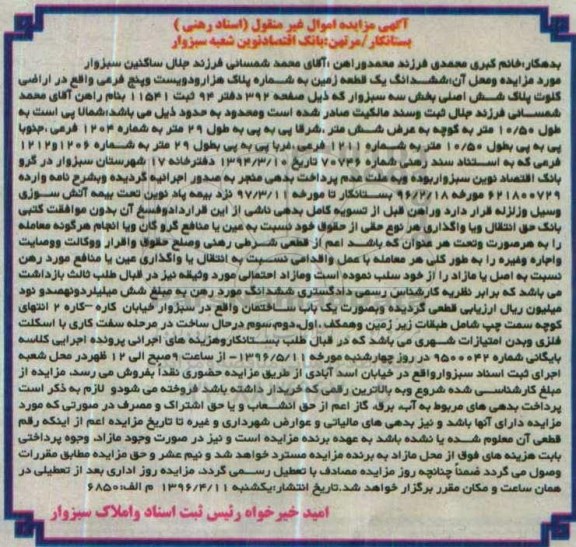 آگهی مزایده اموال غیر منقول (اسناد رهنی)
بستانکار/مرتهن:بانک اقتصادنوین شعبه سبزوار
بدهکار:خانم کبری محمدی فرزند محمدوراهن :آقای محمد شمسانی فرزند جلال ساکنین سبزوار
مورد مزایده ومحل آن:ششدانگ یک قطعه زمین به شماره پلاک هزارودویست وپنج فرعی واقع در اراضی
کلوت پلاک شش اصلی بخش سه سبزوار که ذیل صفحه ۳۹۲ دفتر ۹۴ ثبت ۱۱۵۴۱ بنام راهن آقای محمد
شمسانی فرزند جلال ثبت وسند مالکیت صادر شده است ومحدود به حدود ذیل می باشد:شمالا پی است به
طول ۱۰/۵۰ متر به کوچه به عرض شش متر ،شرقا پی به پی به طول ۲۹ متر به شماره ۱۲۰۴ فرعی ،جنوبا
پی به پی بطول ۱۰/۵۰ متر به شماره ۱۲۱۱ فرعی،غربا پی به پی بطول ۲۹ متر به شماره ۱۲۰۶و۱۲۱۲
فرعی که به استناد سند رهنی شماره ۷۰۷۴۶ تاریخ ۱۳۹۴/۳/۱۰ دفترخانه ۱۷ شهرستان سبزوار در گرو
بانک اقتصاد نوین سبزواربوده وبه علت عدم پرداخت بدهی منجر به صدور اجرائیه گردیده وبشرح نامه وارده
۶۲۱۸۰۰۷۲۹ مورخه ۹۶/۲/۱۸ بستانکار تا مورخه ۹۷/۳/۱۱ نزد بیمه پاد نوین تحت بیمه آتش سوزی
وسیل وزلزله قرار دارد وراهن قبل از تسویه کامل بدهی ناشی از این قراردادوفسخ آن بدون موافقت کتبی
بانک حق انتقال ویا واگذاری هر نوع حقی از حقوق خود نسبت به عین یا منافع گرو گان ویا انجام هرگونه معامله
را به هرصورت وتحت هر عنوان که باشد اعم از قطعی شرطی رهنی وصلح حقوق واقرار ووکالت ووصایت
واجاره وغیره را به طور کلی هر معامله یا عمل واقدامی نسبت به انتقال یا واگذاری عین یا منافع مورد رهن
نسبت به اصل یا مازاد را از خود سلب نموده است ومازاد احتمالی مورد وثیقه نیز در قبال طلب ثالث بازداشت
می باشد که برابر نظریه کارشناس رسمی دادگستری ششدانگ مورد رهن به مبلغ شش میلیاردونهصدو نود
میلیون ریال ارزیابی قطعی گردیده وبصورت یک باب ساختمان واقع در سبزوار خیابان کاره -کاره ۲ انتهای
کوچه سمت چپ شامل طبقات زیر زمین وهمکف،اول،دوم،سوم درحال ساخت در مرحله سفت کاری با اسکلت
فلزی وبدن امتیازات شهری می باشد که در قبال طلب بستانکاروهزینه های اجرائی پرونده اجرایی کلاسه
بایگانی شماره ۹۵۰۰۰۴۲ در روز چهارشنبه مورخه ۱۳۹۶/۵/۱۱- از ساعت ۹صبح الی ۱۲ ظهردر محل شعبه
اجرای ثبت اسناد سبزوارواقع در خیابان اسد آبادی از طریق مزایده حضوری نقداً بفروش می رسد، مزایده از
مبلغ کارشناسی شده شروع وبه بالاترین رقمی که خریدار داشته باشد فروخته می شودو لازم به ذکر است
پرداخت بدهی های مربوط به آب، برق، گاز اعم از حق انشعاب و یا حق اشتراک و مصرف در صورتی که مورد
مزایده دارای آنها باشد و نیز بدهی های مالیاتی و عوارض شهرداری و غیره تا تاریخ مزایده اعم از اینکه رقم
قطعی آن معلوم شده یا نشده باشد به عهده برنده مزایده است و نیز در صورت وجود مازاد، وجوه پرداختی
بابت هزینه های فوق از محل مازاد به برنده مزایده مسترد خواهد شد و نیم عشر و حق مزایده مطابق مقررات
وصول می گردد ضمناً چنانچه روز مزایده مصادف با تعطیل رسمی گردد، مزایده روز اداری بعد از تعطیلی در
همان ساعت و مکان مقرر برگزار خواهد شد.تاریخ انتشار:یکشنبه ۱۳۹۶/۴/۱۱ م الف:۶۸۵۰
امید خیرخواه رئیس ثبت اسناد واملاک سبزوار